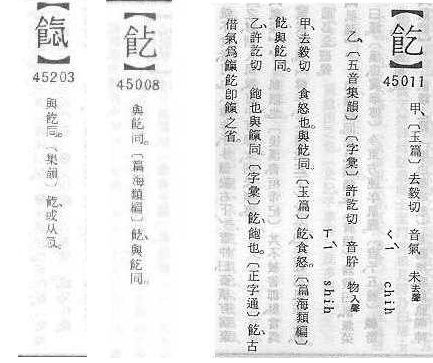 【䬣】
45011
甲、〔玉篇〕去毅切 音氣 未去聲
ㄑㄧˋ chih
乙、〔五音集韻〕〔字彙〕許訖切 音肸 物入聲
ㄒㄧˋ shih
甲、去毅切 食怒也。與䬣同。〔玉篇〕䬣、食怒。〔篇海類編〕
䬣與䬣同。
乙、許訖切 飽也與餼同〔字彙〕䬣、飽也。〔正字通〕䬣、古
借氣爲餼䬣卽餼之省
【䬣】
45008
與䬣同。〔篇海類編〕䬣、與䬣同。
45203
與䬣同。〔集韻〕䬣、或从氣。